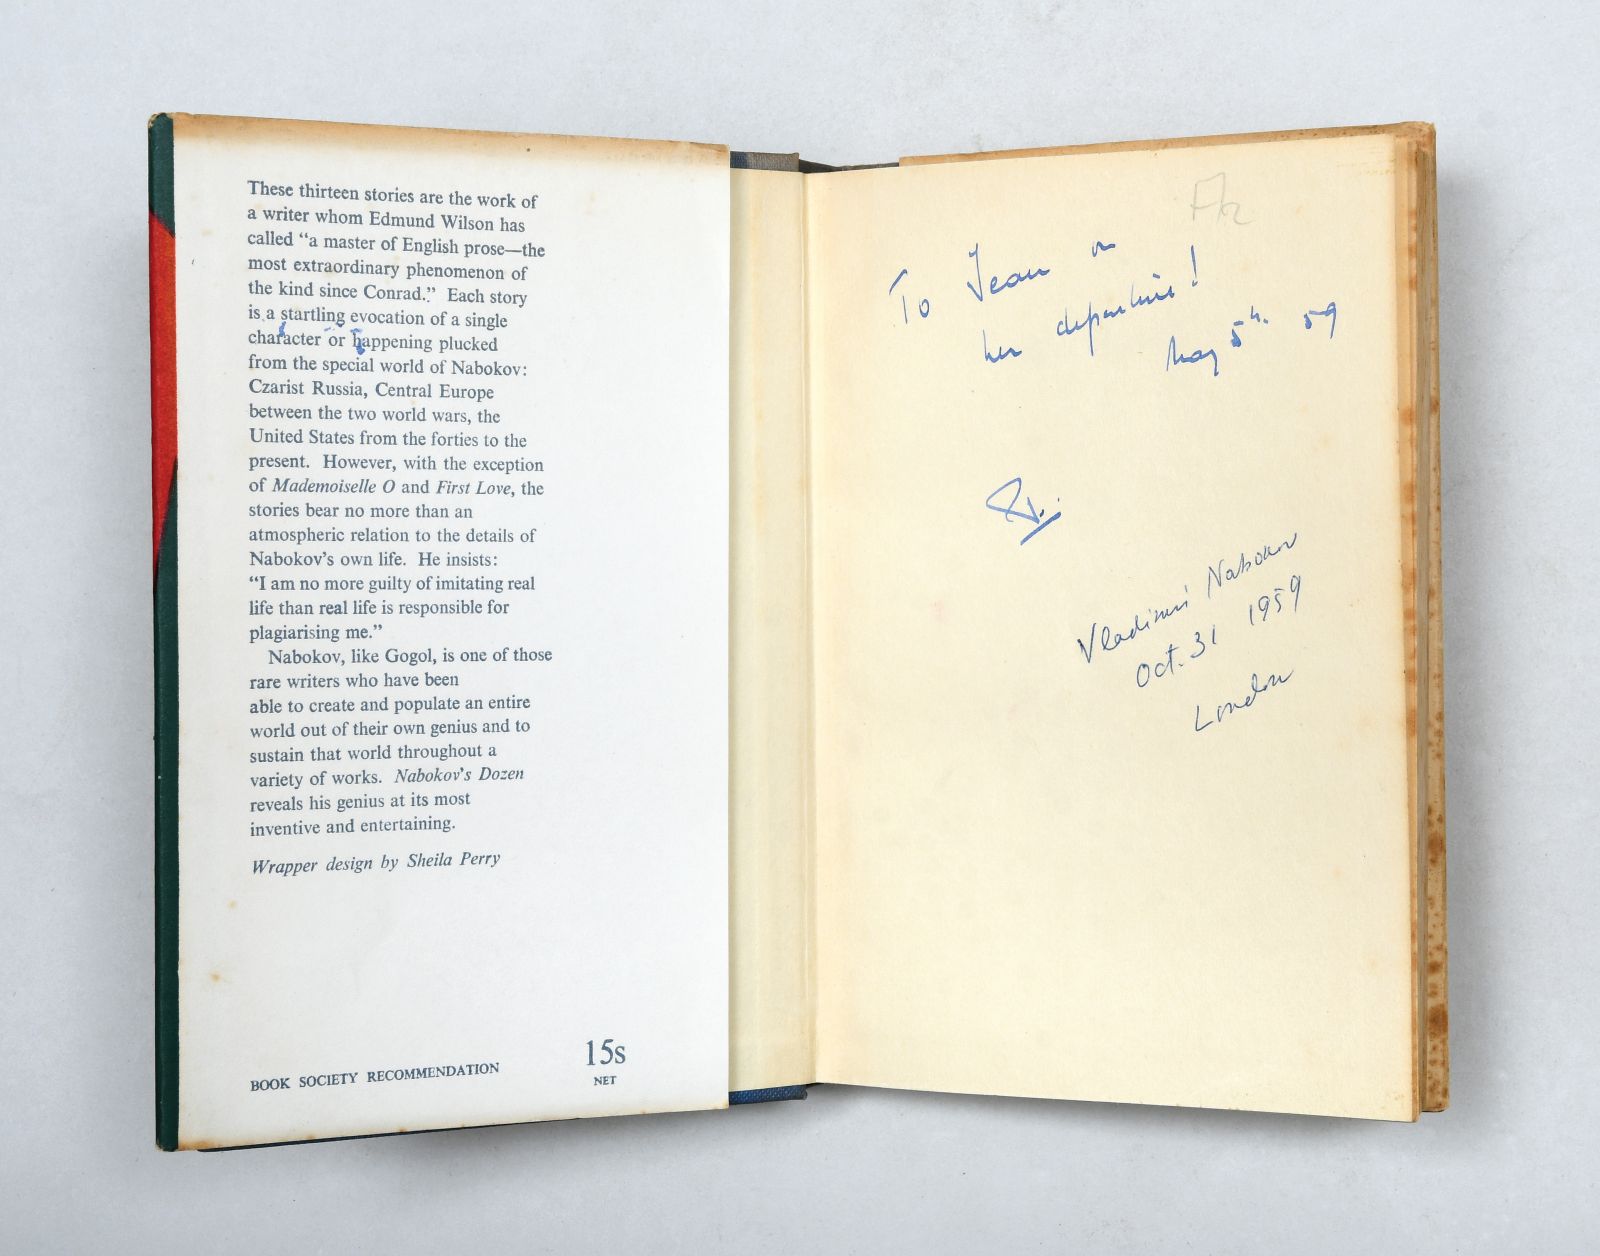 These thirteen stories are the work of
a writer whom Edmund Wilson has
called “a master of English prose—the
most extraordinary phenomenon of
the kind since Conrad.” Each story
is a startling evocation of a single
character or happening plucked
from the special world of Nabokov:
Czarist Russia, Central Europe
between the two world wars, the
United States from the forties to the
present. However, with the exception
of Mademoiselle O and First Love, the
stories bear no more than an
atmospheric relation to the details of
Nabokov’s own life. He insists:
“I am no more guilty of imitating real
life than real life is responsible for
plagiarising me.”
Nabokov, like Gogol, is one of those
rare writers who have been
able to create and populate an entire
world out of their own genius and to
sustain that world throughout a
variety of works. Nabokov’s Dozen
reveals his genius at its most
inventive and entertaining.
Wrapper design by Sheila Perry
BOOK SOCIETY RECOMMENDATION
15s
NET
To Jean on
her departure!
May 5th. 59
Vladimir Nabokov
Oct. 31 1959
London